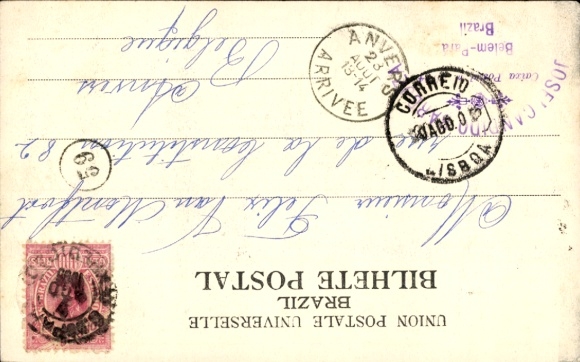 UNION POSTALE UNIVERSELLE
BRAZIL
BILHETE POSTAL
Monsieur Felix Van Montfort
rue de la Constitution 82
Anvers
Belgique
59
ANVERS
23
AOUT
13-14
ARRIVÉE
CORREIO
AGO.0
LISBOA
JOSÉ CANDIDO
Caixa Postal
Belem-Pará
Brazil